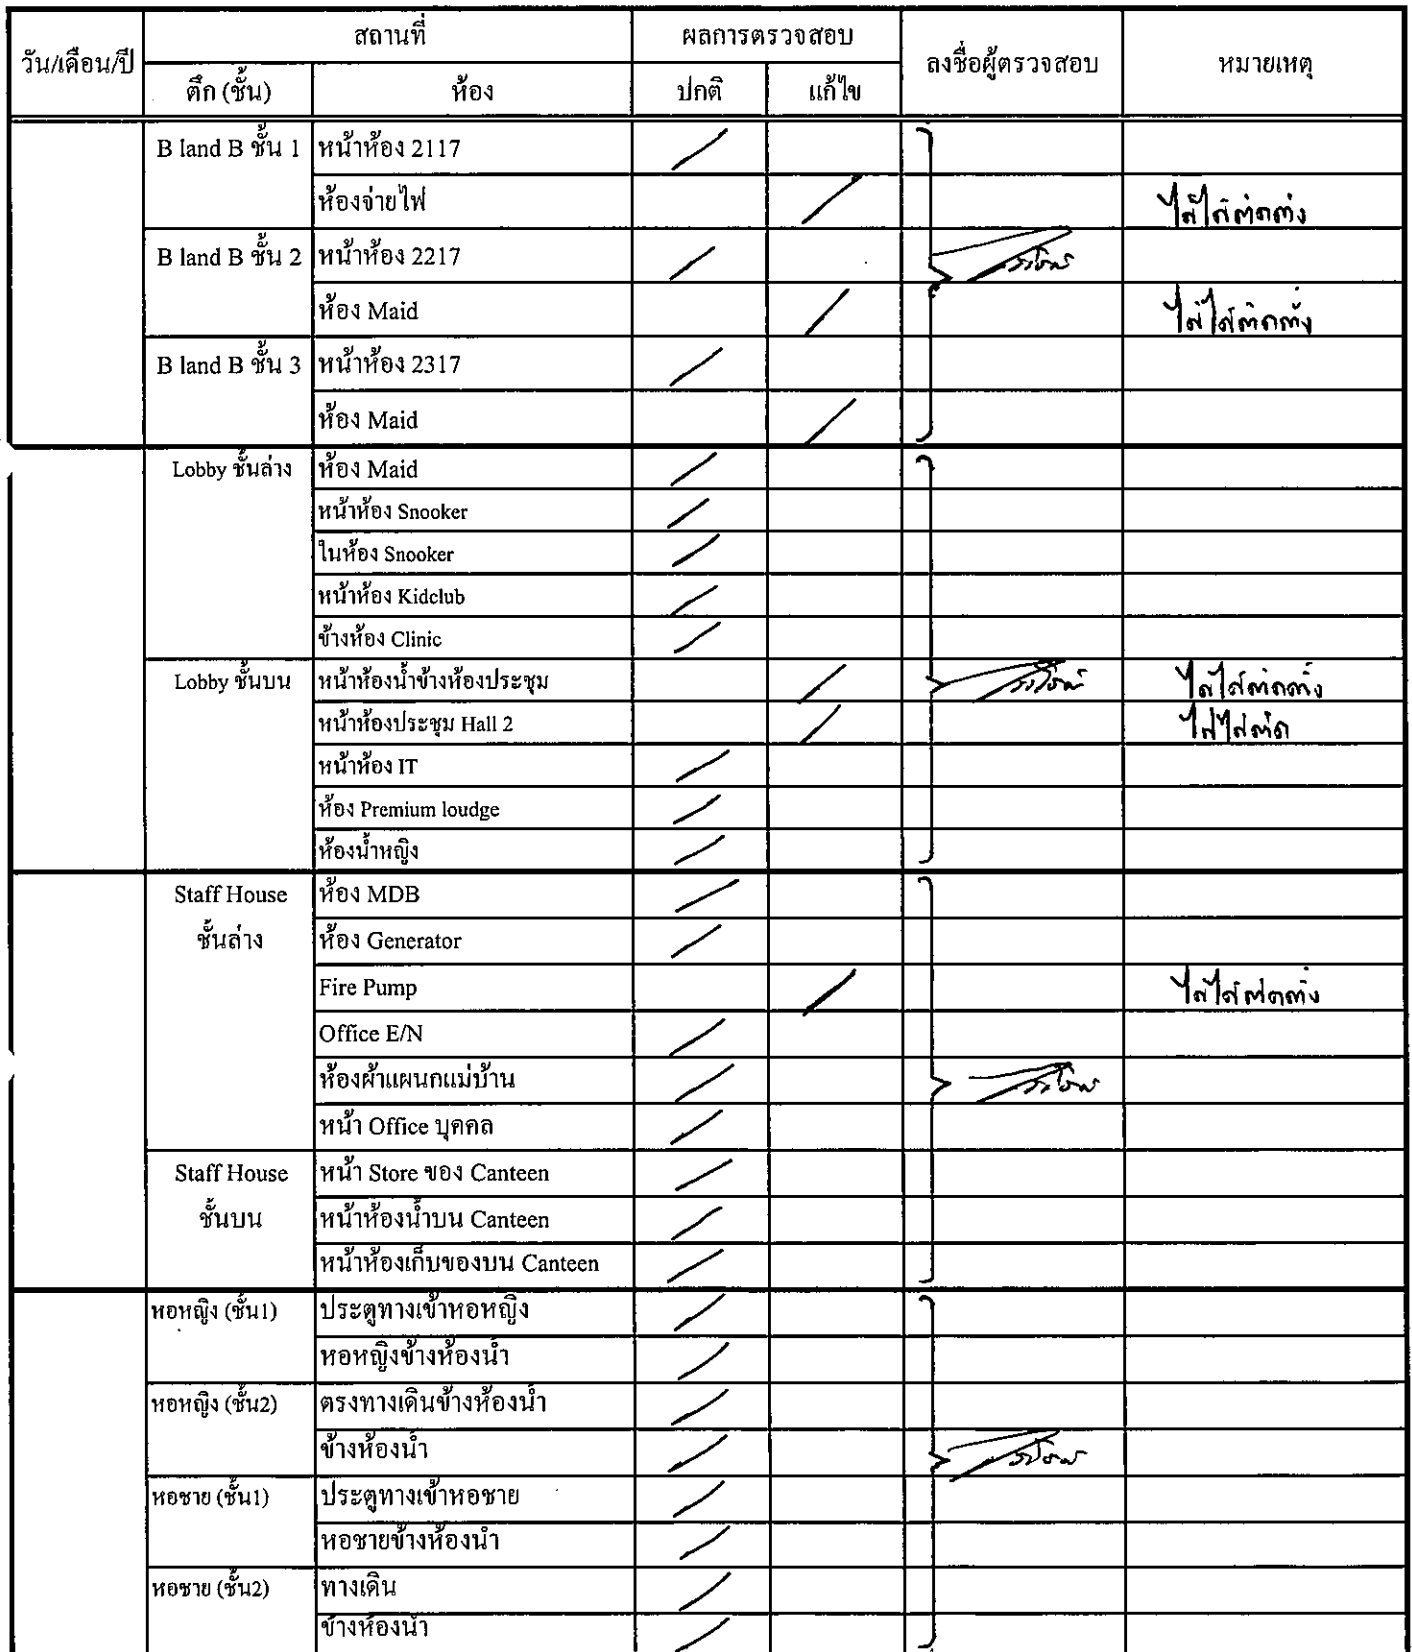 วัน/เดือน/ปี สถานที่ ผลการตรวจสอบ ลงชื่อผู้ตรวจสอบ หมายเหตุ
ตึก (ชั้น) ห้อง ปกติ แก้ไข
B land B ชั้น 1 หน้าห้อง 2117 /
ห้องจ่ายไฟ /
B land B ชั้น 2 หน้าห้อง 2217 /
ห้อง Maid /
B land B ชั้น 3 หน้าห้อง 2317 /
ห้อง Maid /
Lobby ชั้นล่าง ห้อง Maid /
หน้าห้อง Snooker /
ในห้อง Snooker /
หน้าห้อง Kidclub /
ข้างห้อง Clinic /
Lobby ชั้นบน หน้าห้องน้ำข้างห้องประชุม /
หน้าห้องประชุม Hall 2 /
หน้าห้อง IT /
ห้อง Premium loudge /
ห้องน้ำหญิง /
Staff House ห้อง MDB /
ชั้นล่าง ห้อง Generator /
Fire Pump /
Office E/N /
ห้องผ้าแผนกแม่บ้าน /
หน้า Office บุคคล /
Staff House หน้า Store ของ Canteen /
ชั้นบน หน้าห้องน้ำบน Canteen /
หน้าห้องเก็บของบน Canteen /
หอหญิง (ชั้น1) ประตูทางเข้าหอหญิง /
หอหญิงข้างห้องน้ำ /
หอหญิง (ชั้น2) ตรงทางเดินข้างห้องน้ำ /
ข้างห้องน้ำ /
หอชาย (ชั้น1) ประตูทางเข้าหอชาย /
หอชายข้างห้องน้ำ /
หอชาย (ชั้น2) ทางเดิน /
ข้างห้องน้ำ /